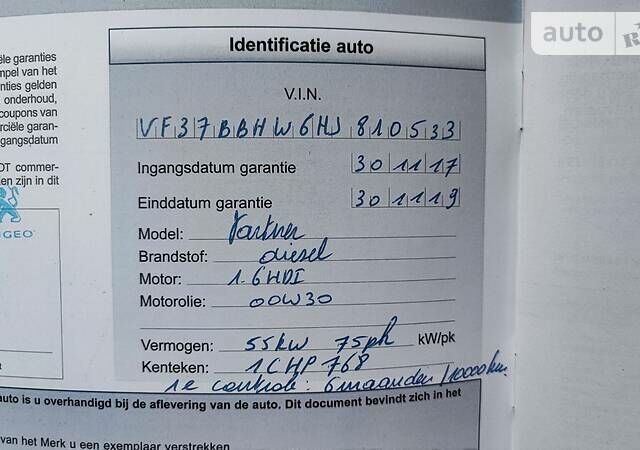 auto RIA
ële garanties
mpel van het
nties gelden
onderhoud,
coupons van
rciële garan-
gangsdatum
OT commer-
en zijn in dit
GEO
Identificatie auto
V.I.N.
VF37BBHW6HJ 810533
Ingangsdatum garantie 30 11 17
Einddatum garantie 30 11 19
Model: Partner
Brandstof: diesel
Motor: 1.6HDI
Motorolie: 00W30
Vermogen: 55kw 75pk kW/pk
Kenteken: 1CHP768
1e controle: 6maanden/10000km.
auto is u overhandigd bij de aflevering van de auto. Dit document bevindt zich in het
van het Merk u een exemplaar verstrekken